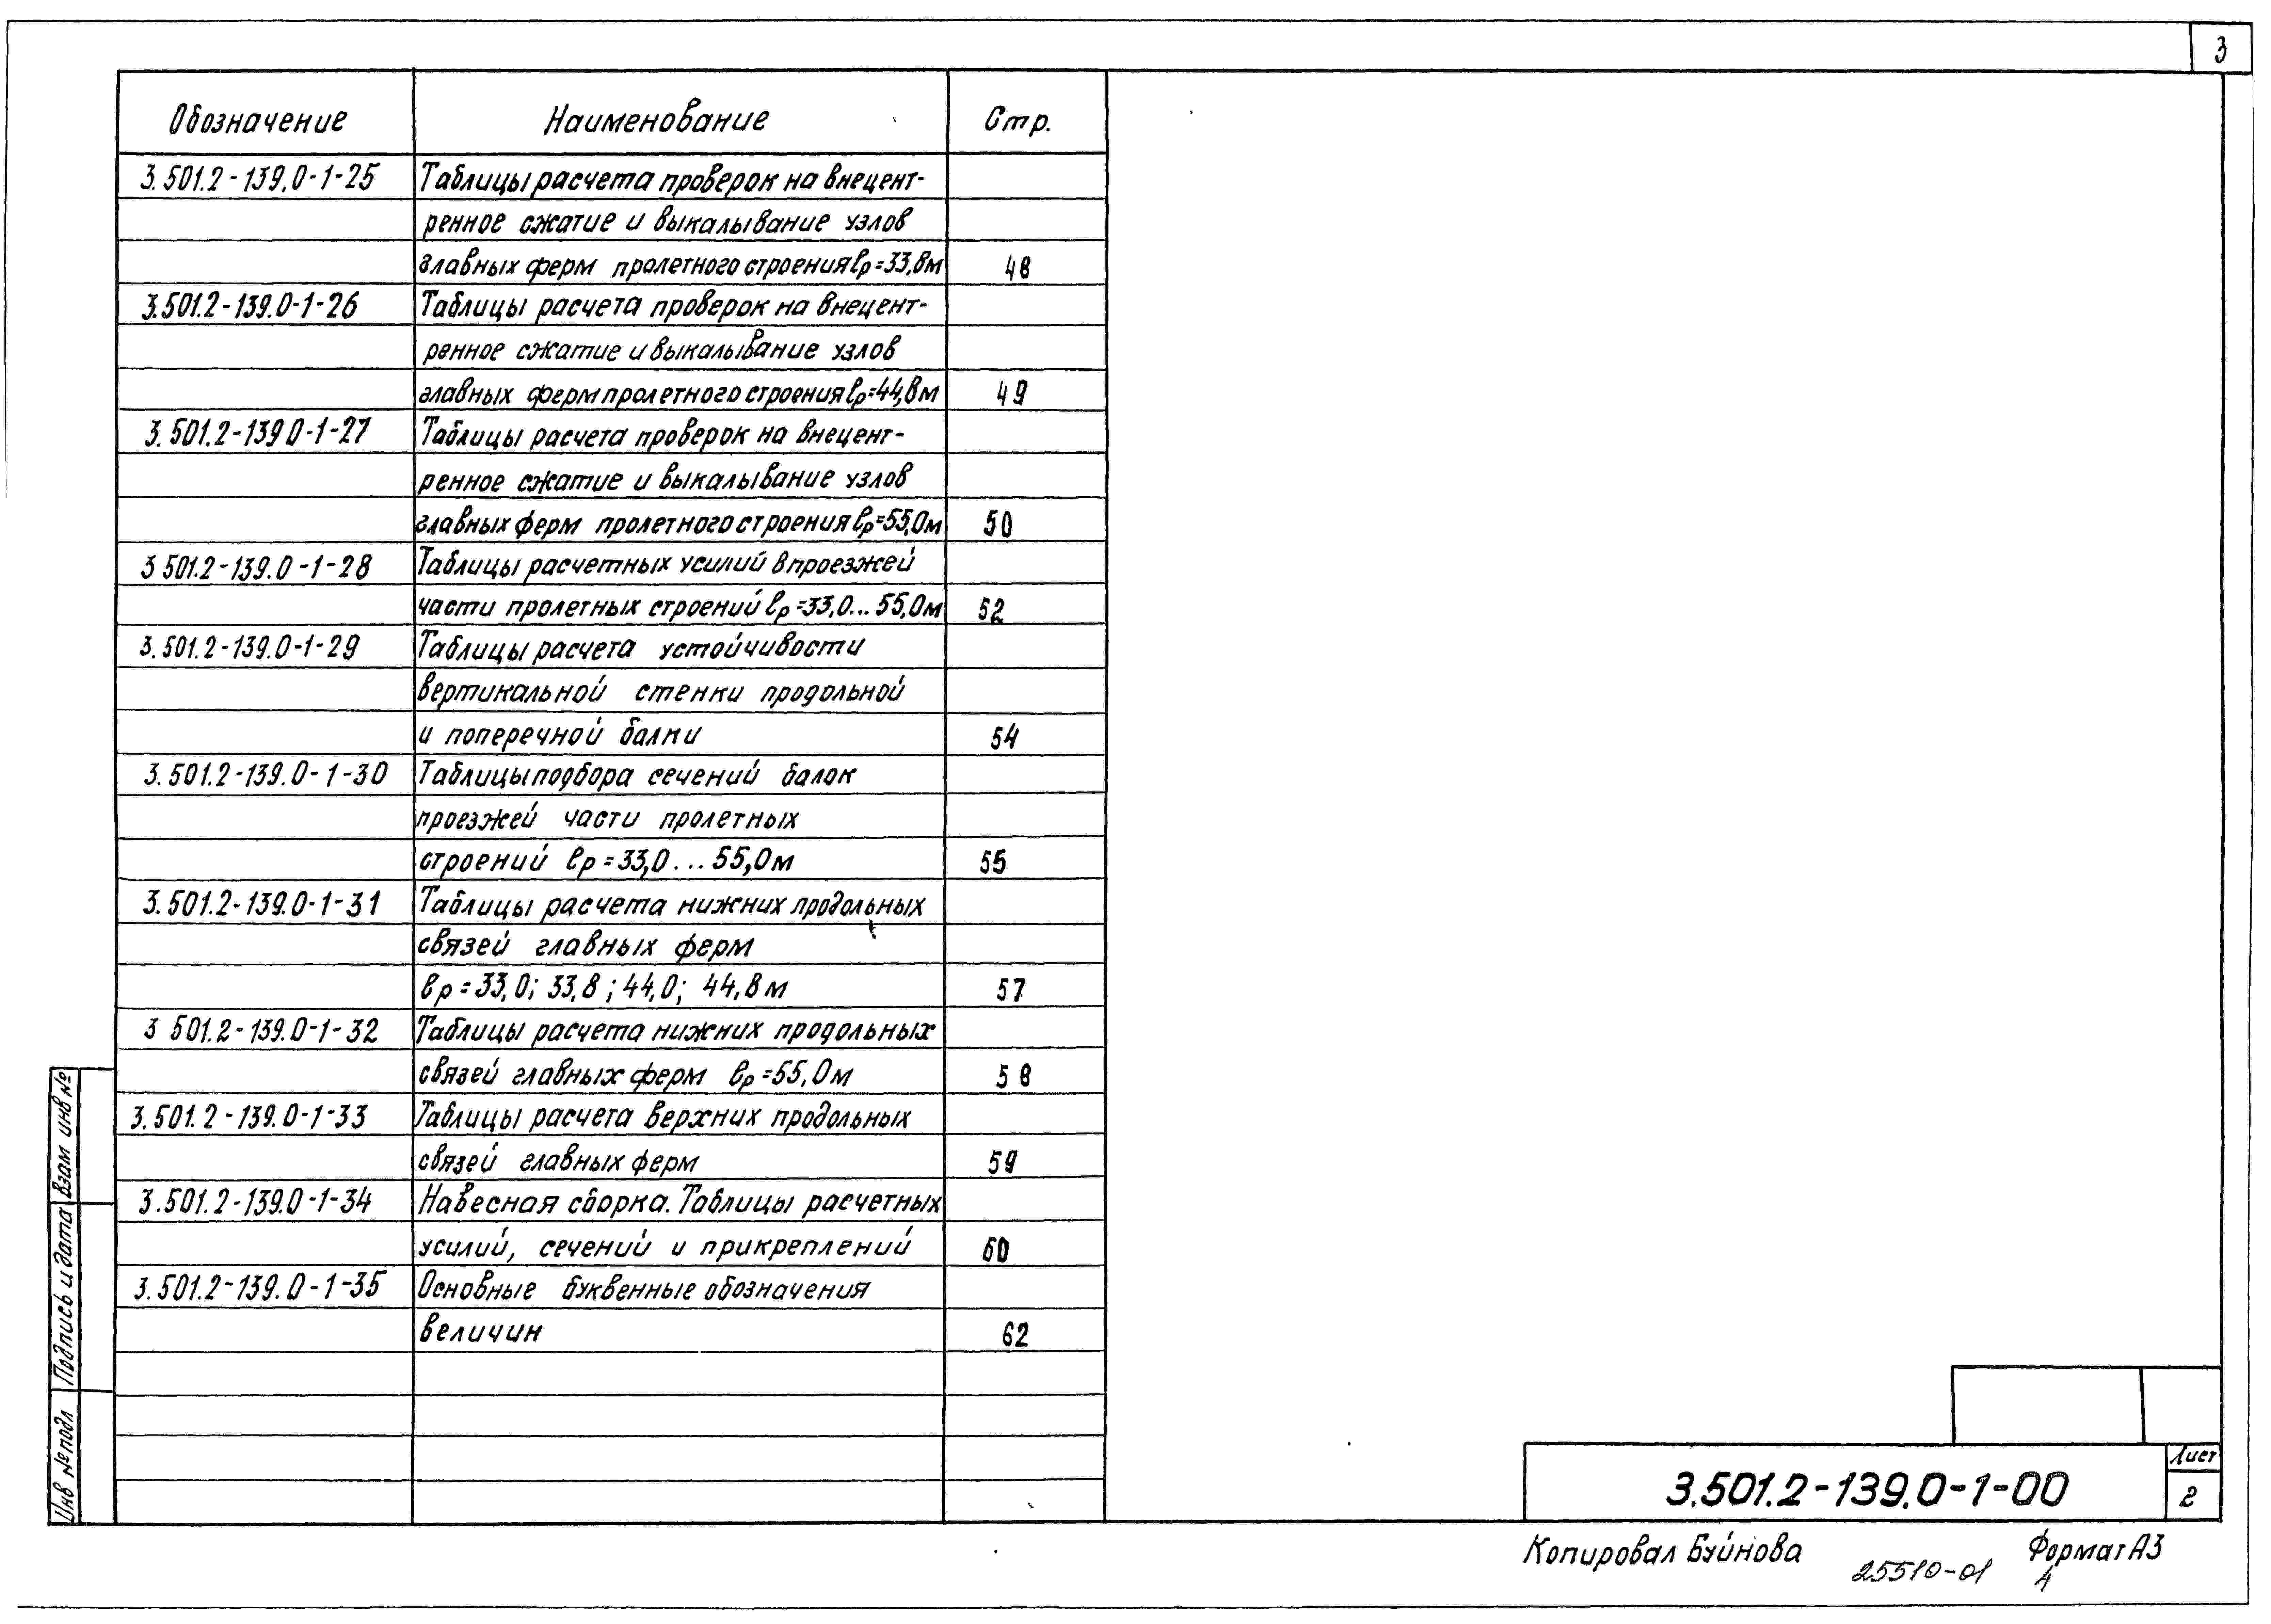 3
Обозначение Наименование Стр.
3.501.2-139.0-1-25 Таблицы расчета проверок на внецент-
ренное сжатие и выкалывание узлов
главных ферм пролетного строения lр=33,8м 48
3.501.2-139.0-1-26 Таблицы расчета проверок на внецент-
ренное сжатие и выкалывание узлов
главных ферм пролетного строения lр=44,8м 49
3.501.2-139 0-1-27 Таблицы расчета проверок на внецент-
ренное сжатие и выкалывание узлов
главных ферм пролетного строения lр=55,0м 50
3 501.2-139.0-1-28 Таблицы расчетных усилий в проезжей
части пролетных строений lр=33,0...55,0м 52
3.501.2-139.0-1-29 Таблицы расчета устойчивости
вертикальной стенки продольной
и поперечной балки 54
3.501.2-139.0-1-30 Таблицы подбора сечений балок
проезжей части пролетных
строений lр=33,0...55,0м 55
3.501.2-139.0-1-31 Таблицы расчета нижних продольных
связей главных ферм
lр=33,0; 33,8; 44,0; 44,8м 57
3 501.2-139.0-1-32 Таблицы расчета нижних продольных
связей главных ферм lр=55,0м 58
3.501.2-139.0-1-33 Таблицы расчета верхних продольных
связей главных ферм 59
3.501.2-139.0-1-34 Навесная сборка. Таблицы расчетных
усилий, сечений и прикреплений 60
3.501.2-139.0-1-35 Основные буквенные обозначения
величин 62
Взам инв №
Подпись и дата
Инв № подл
3.501.2-139.0-1-00
Лист
2
Копировал Буйнова Формат А3
25510-01 4